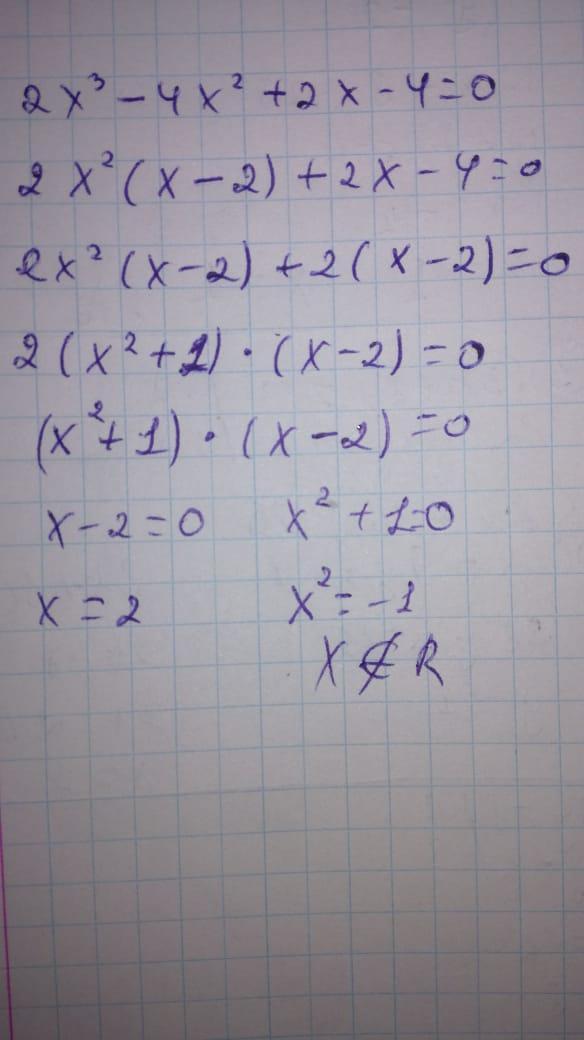 2x³ - 4x² + 2x - 4 = 0
2x²(x - 2) + 2x - 4 = 0
2x²(x - 2) + 2(x - 2) = 0
2(x² + 1) · (x - 2) = 0
(x² + 1) · (x - 2) = 0
x - 2 = 0 x² + 1 = 0
x = 2 x² = -1
x ∉ R